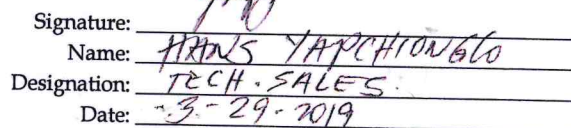 Signature:
Name: HANS YAPCHIONGCO
Designation: TECH. SALES.
Date: 3-29-2019